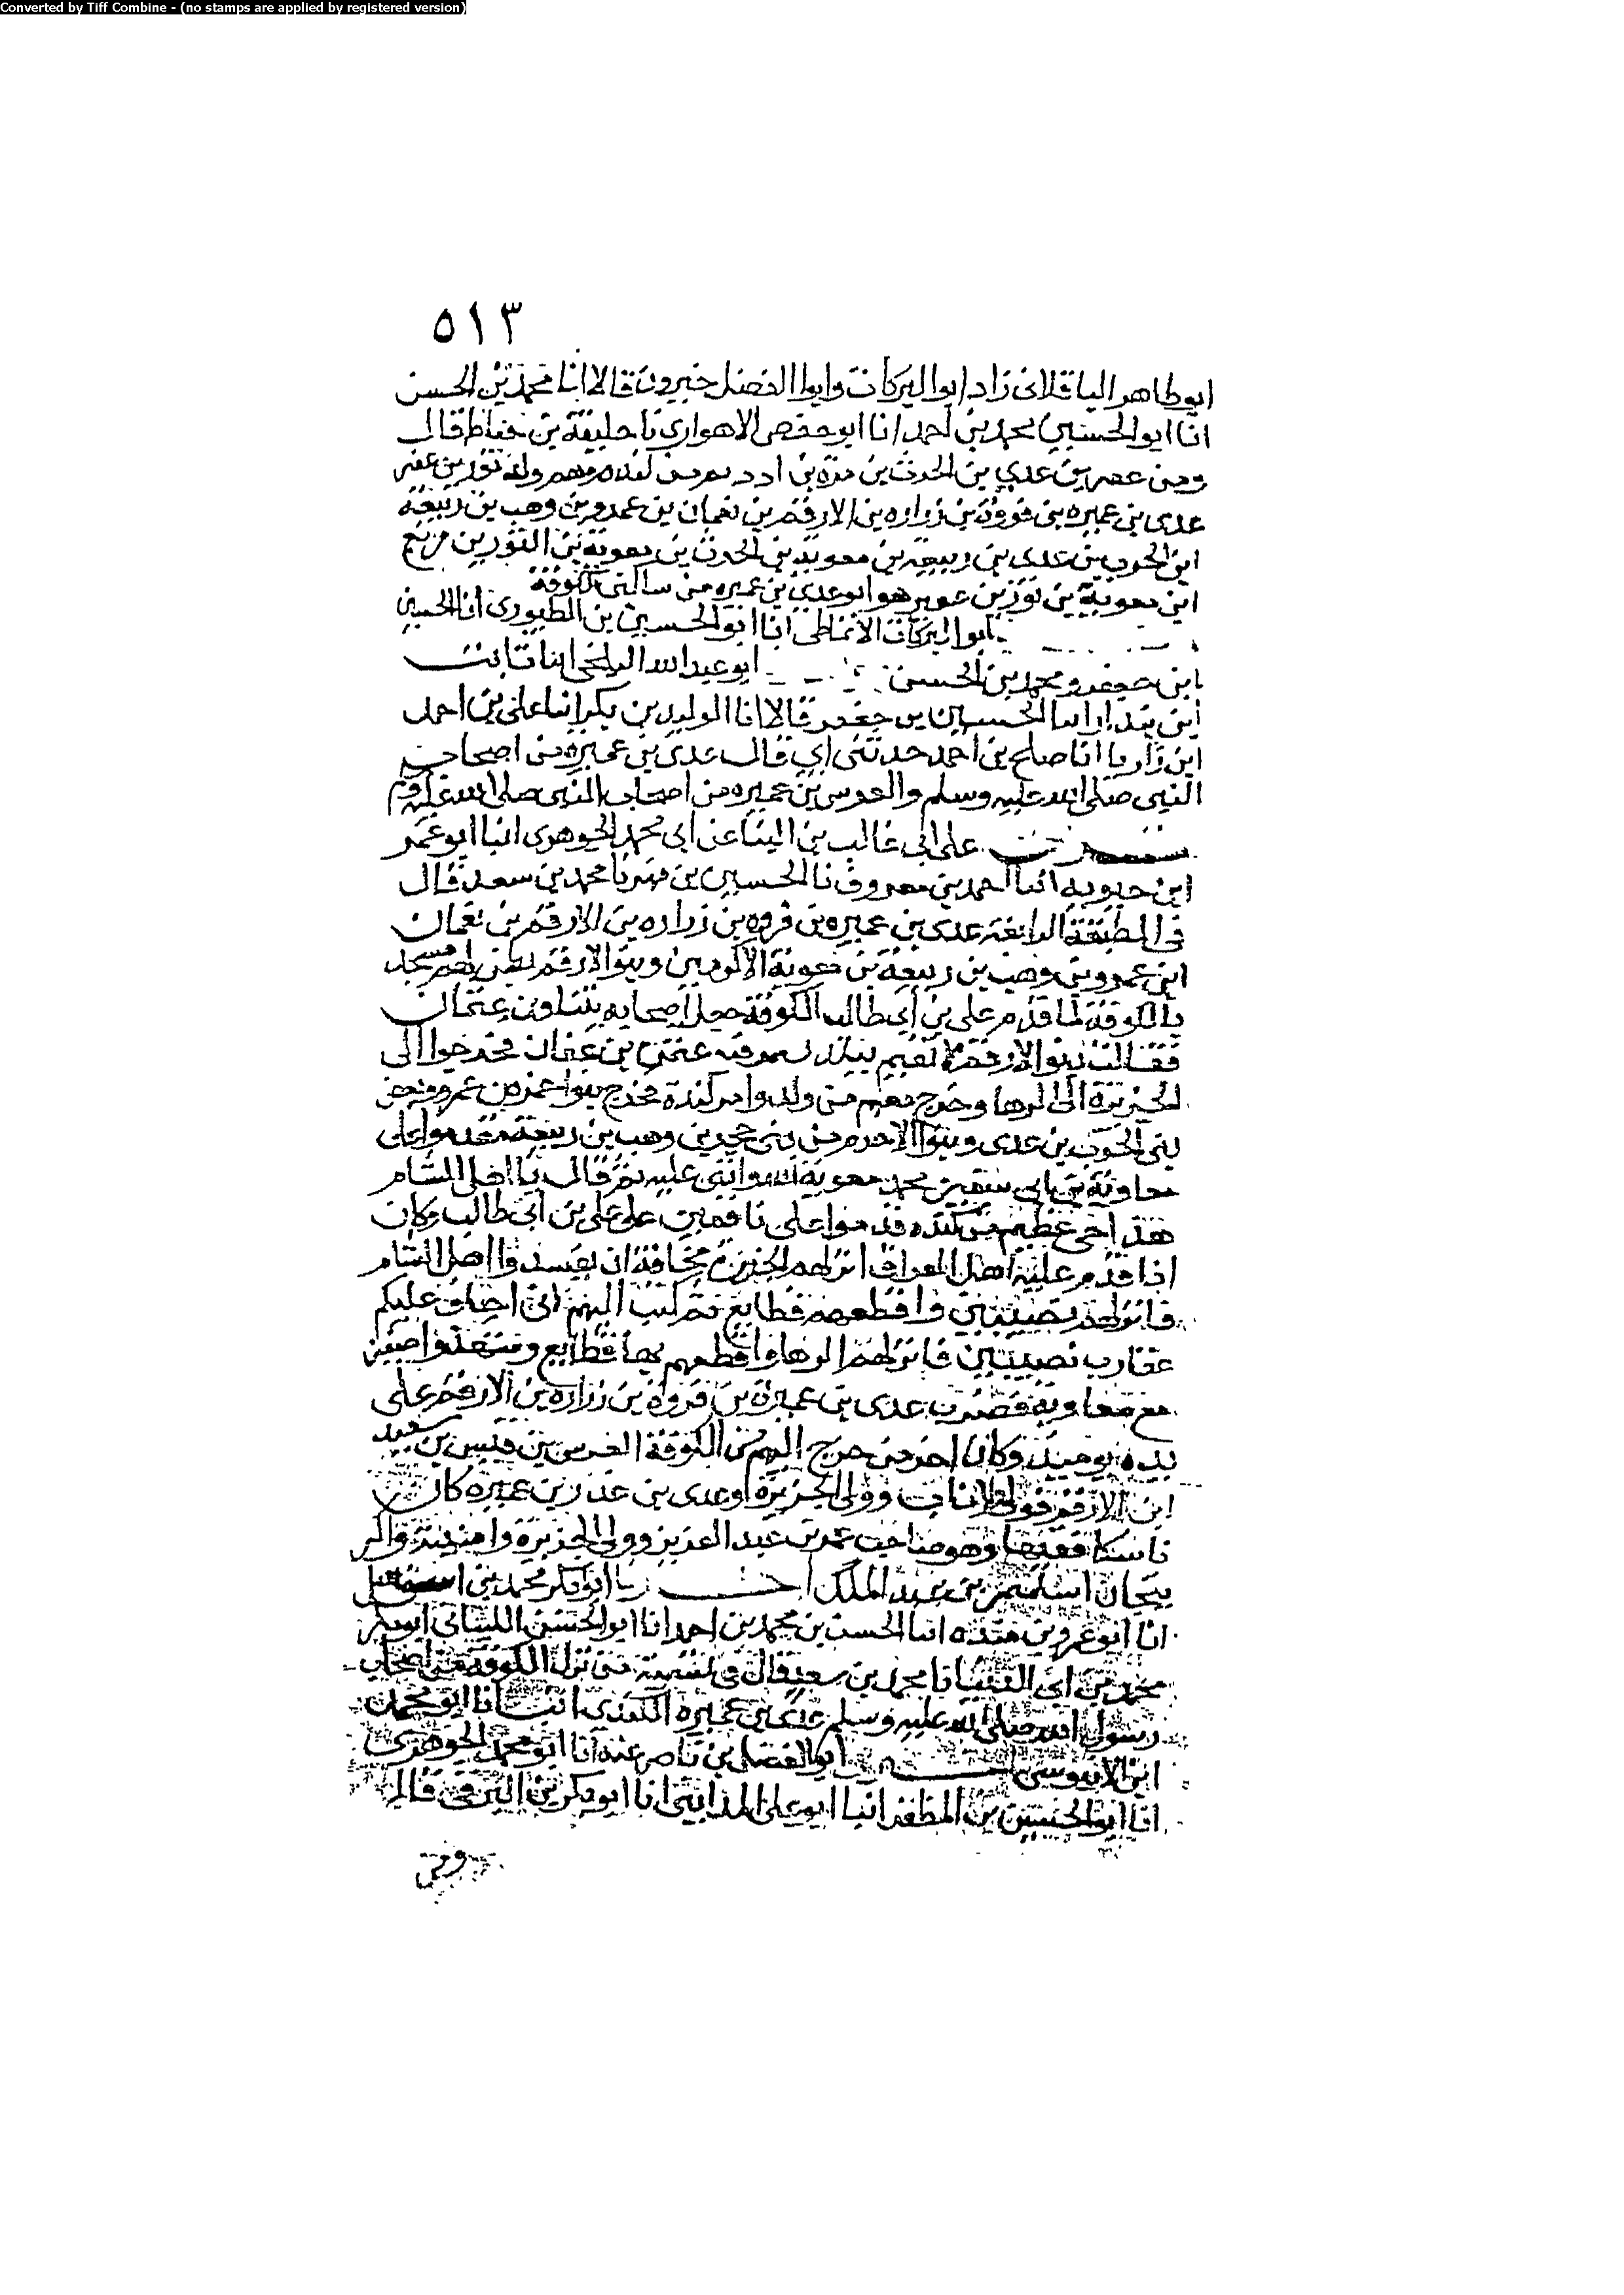 Converted by Tiff Combine - (no stamps are applied by registered version)
٥١٣
ابو طاهر الباقلاني زاد ابو البركات وابوا الفضل خيرون قالا انا محمد بن الحسن
انا ابو الحسين محمد بن احمد انا ابو حفص الاهوازي نا خليفة بن خياط قال
ومن عفير بن عدي بن الحرث بن مرة بن ادد ثور بن عفير
عدى بن عميره بن فروة بن زراره بن الارقم بن نعمان بن عمرو بن وهب بن ربيعة
ابن الحرث بن عدى بن ربيعة بن معوية بن الحرث بن معوية بن الثور بن مرتع
ابن معوية بن ثور بن عفير هو ابو عدي بن عميره من ساكني الكوفة
ابوا البركات الانماطى انا ابو الحسين بن الطيورى انا الحسين
ابن جعفر ومحمد بن الحسن ابو عبد الله البلخى انبا ثابت
ابن بندار انبا الحسين بن جعفر قالا انا الوليد بن بكر انبا على بن احمد
ابن زكريا انا صلح بن احمد حدثنى ابي قال عدى بن عميره من اصحاب
النبى صلى الله عليه وسلم والعرس بن عميره من اصحاب النبى صلى الله عليه وسلم
على ابى غالب بن البنا عن ابى محمد الجوهرى انبا ابو عمر
ابن حيويه انبا احمد بن معروف نا الحسين بن فهم نا محمد بن سعد قال
فى الطبقة الرابعة عدى بن عميره بن فروه بن زراره بن الارقم بن نعمان
ابن عمرو بن وهب بن ربيعة بن معوية الاكرمين وبنوا الارقم بطن لهم مسجد
بالكوفة لما قدم على بن ابى طالب الكوفة جعل اصحابه يتناولون عثمان
فقالت بنوا الارقم لا نقيم ببلد عثمن بن عفان فخرجوا الى
الجزيرة الى الرها وخرج معهم من ولده من كندة فخرج بنوا عمرو
بنى الحرث بن عدى وبنوا الاخرم من بنى حجر بن وهب بن ربيعة فقدموا على
معاوية بن ابى سفين فحمد معوية الله واثنى عليه ثم قال يا اهل الشام
هذا حى عظيم من كنده قدموا على ناقمين على على بن ابى طالب وكان
اذا قدم عليه اهل العراق انزلهم الجزيرة مخافة ان يفسدوا اهل الشام
فانزلهم نصيبين واقطعهم قطايع ثم كتب اليهم انى اخاف عليكم
عقارب نصيبين فانزلهم الرها واقطعهم بها قطايع وشهدوا صفين
مع معاوية فضربت عدى بن عميرة بن فروة بن زراره بن الارقم على
يده يوميذ وكان اخر من خرج اليهم من الكوفة العرس بن قيس بن سعيد
ابن الارقم فولى وولى الجزيرة وعدى بن عدى بن عميرة كان
ناسكا فقيها وهو صاحب عمر بن عبد العزيز وولى الجزيرة وارمينية واذر
بيجان لسليمن بن عبد الملك اخبرنا ابو بكر محمد بن
انا ابو عمرو بن منده انبا الحسن بن محمد بن احمد انا ابو الحسن اللنبانى ابو بكر
محمد بن ابى الدنيا نا محمد بن سعد قال فى تسمية من نزل الكوفة من اصحاب
رسول الله صلى الله عليه وسلم عدى بن عميره الكندى انبانا ابو محمد
ابن الابنوسى ابو الفضل بن ناصر عنه انا ابو محمد الجوهرى
انا ابو الحسين بن المظفر انبا ابو على المدايني انا ابو بكر بن البرقى قال
ومن